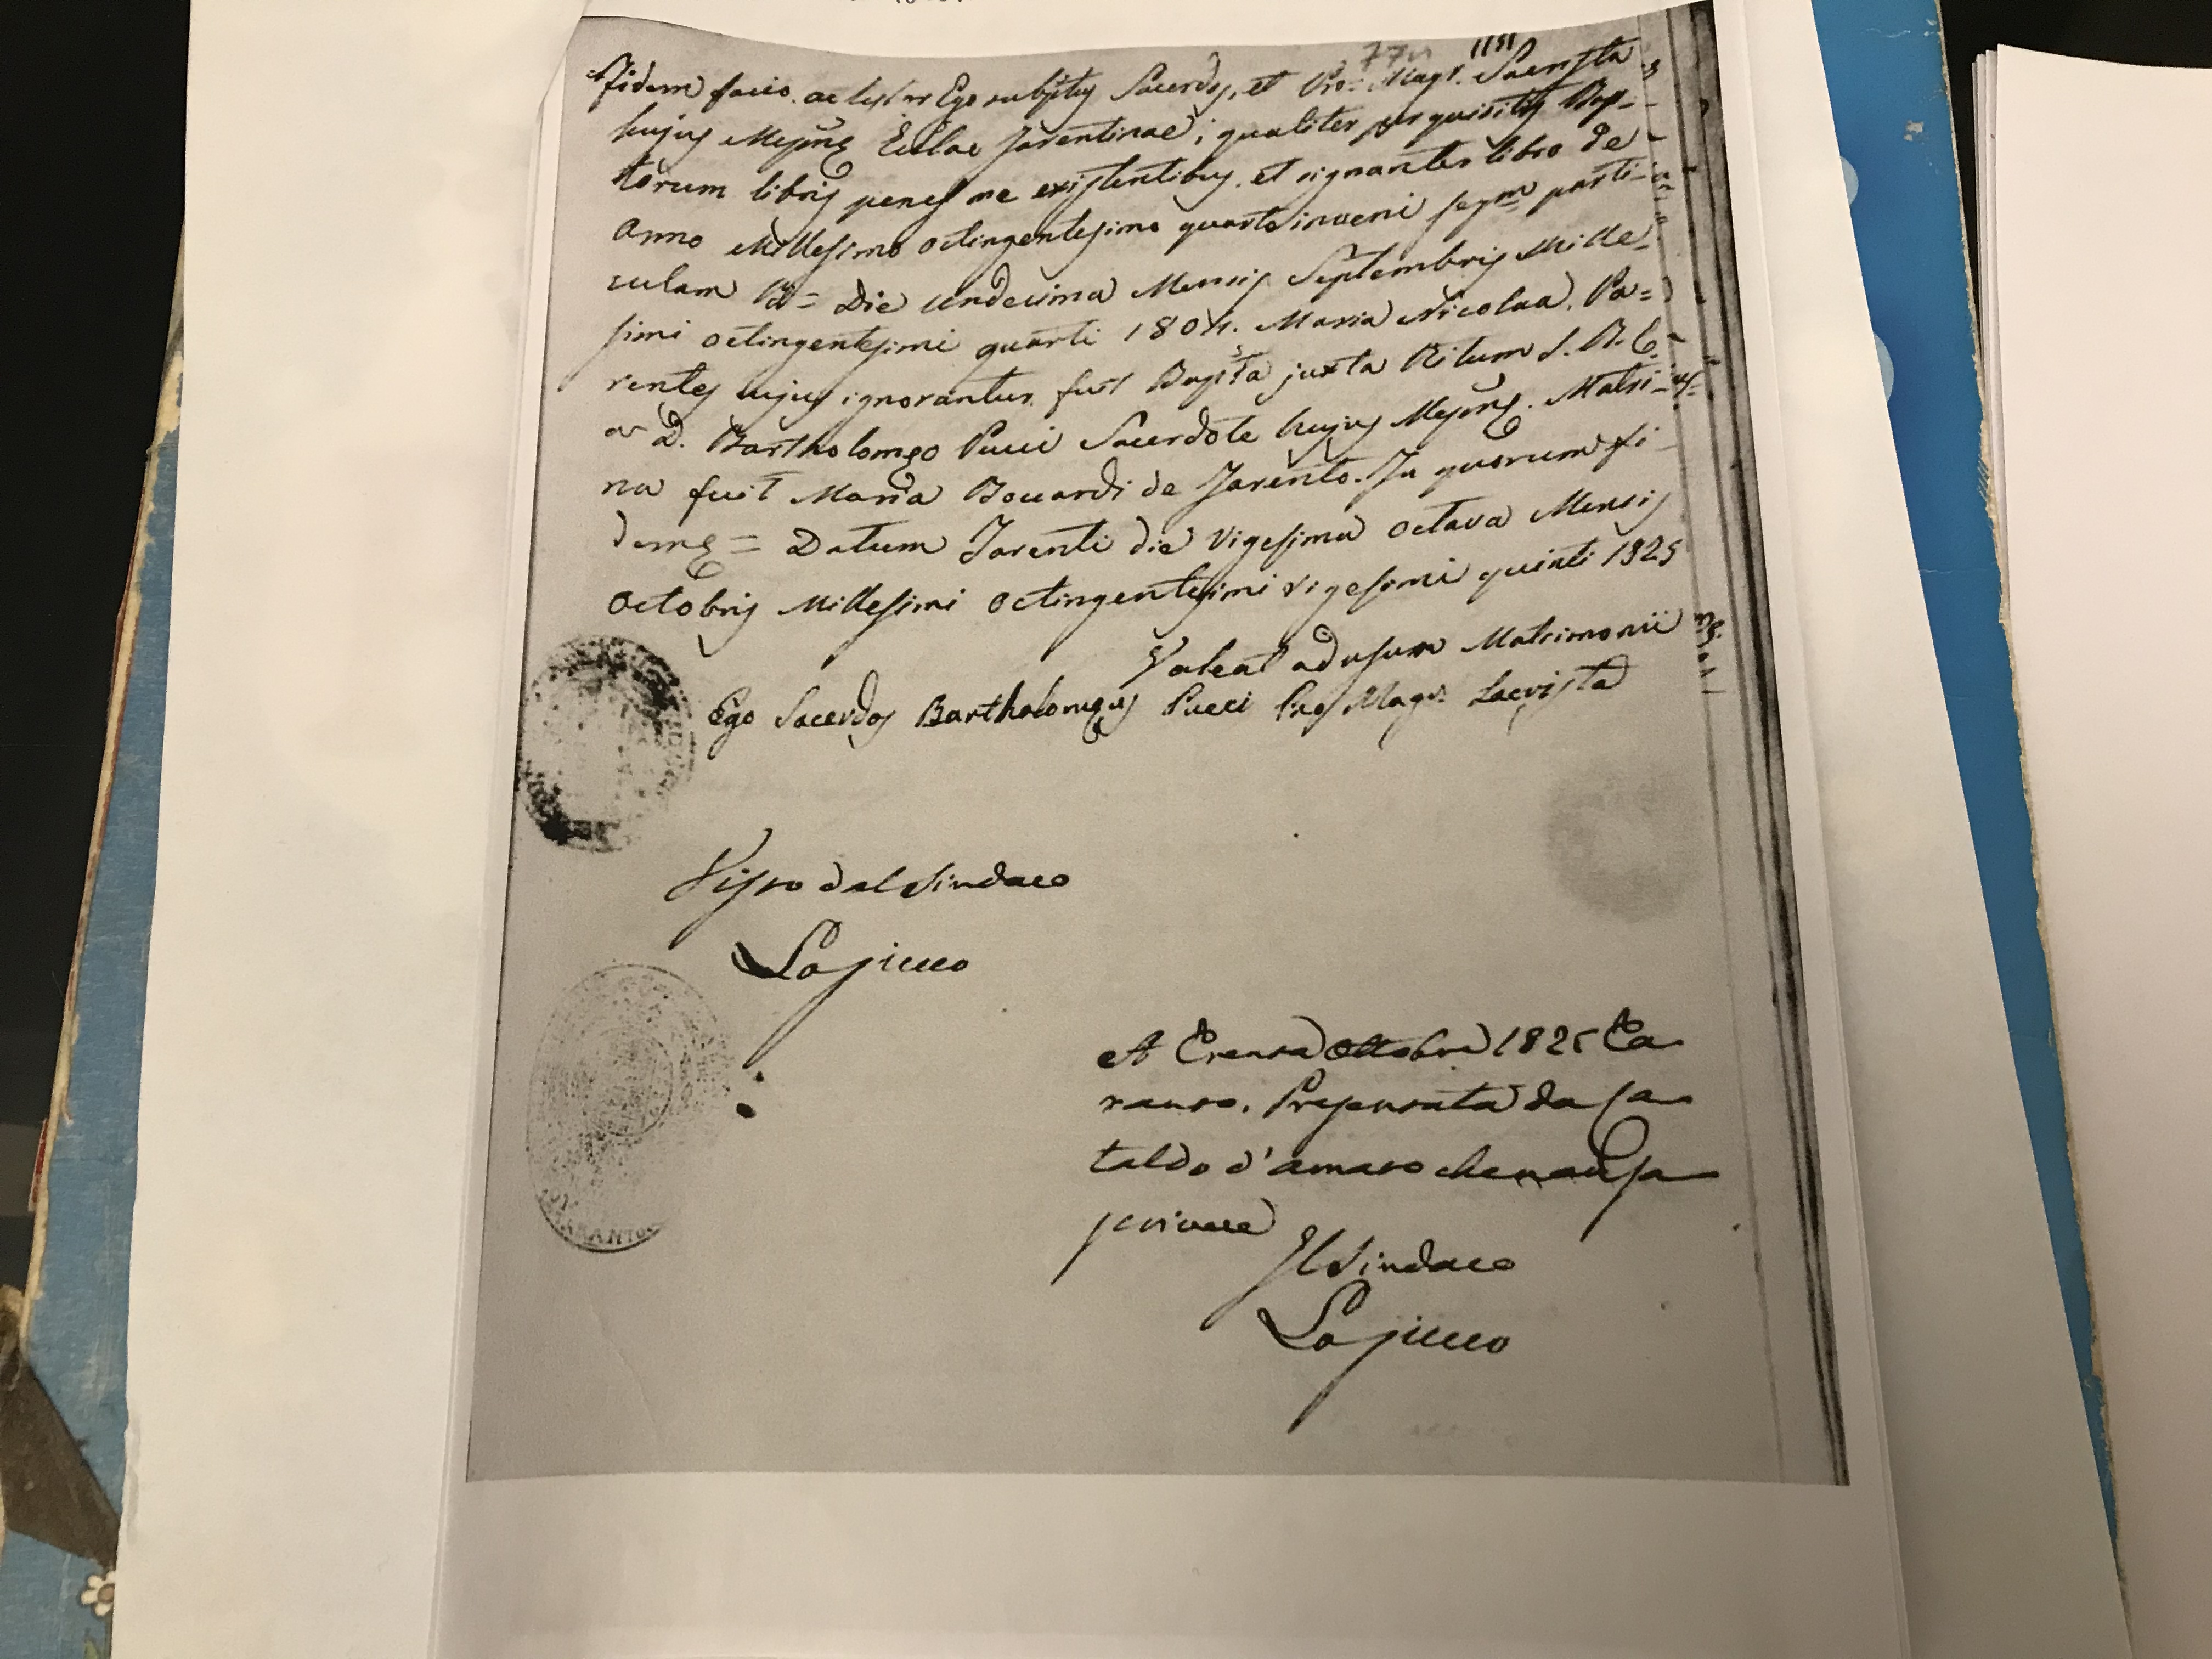 Fidem facio ac testor Ego subsptus Sacerdos, et Pro: Magr. Sacrista
hujus Mepnæ Ecclae Tarentinae, qualiter perquisitis Bap-
torum libris penes me existentibus, et signanter libro de
Anno Millesimo octingentesimo quarto inveni seqm parti-
culam Vz = Die undecima Mensis Septembris Mille-
simi octingentesimi quarti 1804. Maria Nicolaa, Pa=
rentes cujus ignorantur fuit Bapta juxta Ritum S. R. E.
a D. Bartholomęo Pucci Sacerdote hujus Mepnę. Matri-
na fuit Maria Boccardi de Tarento. In quorum fi-
dem = Datum Tarenti die Vigesima octava Mensis
Octobris Millesimi octingentesimi vigesimi quinti 1825
Valeat ad usum Matrimonii
Ego Sacerdos Bartholomęus Pucci Pro Magr. Sacrista
Visto dal Sindaco
Lojucco
A Trenta Ottobre 1825 Ta
ranto. Presentata da Ca
taldo d'amaro che non sa
scrivere
Il Sindaco
Lojucco
TARANTO